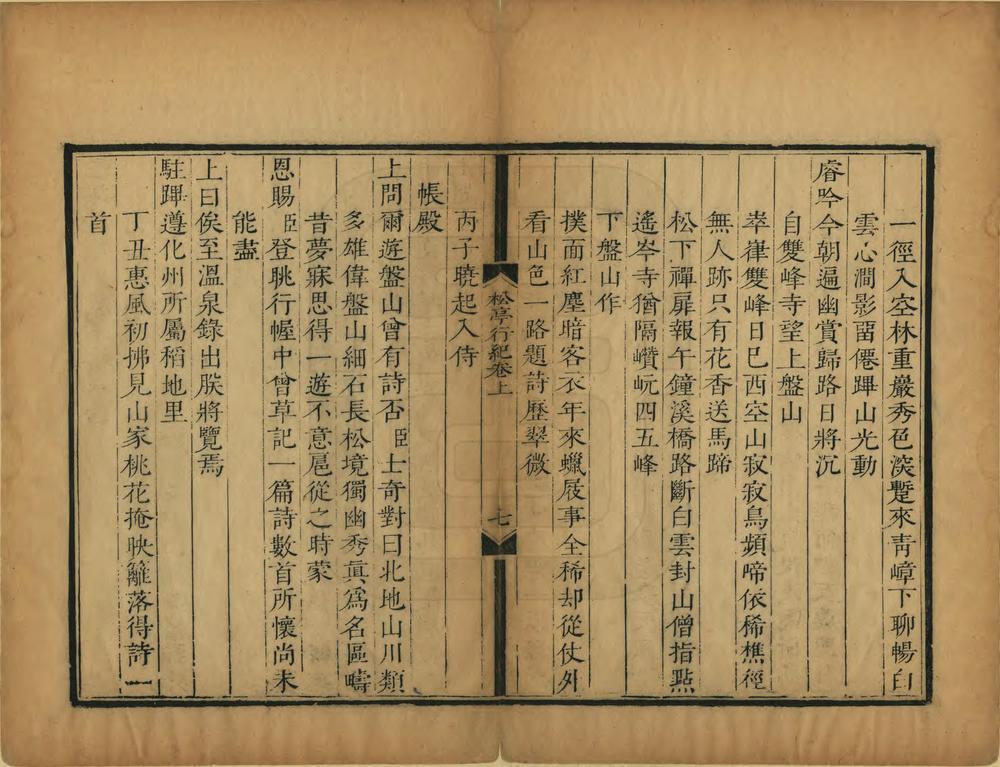 一徑入空林重巖秀色淡蹔來青嶂下聊暢白
雲心澗影畱僊蹕山光動
睿吟今朝遍幽賞歸路日將沉
自雙峰寺望上盤山
崒嵂雙峰日已西空山寂寂鳥頻啼依稀樵徑
無人跡只有花香送馬蹄
松下禪扉報午鐘溪橋路斷白雲封山僧指點
遙岑寺猶隔巑岏四五峰
下盤山作
撲面紅塵暗客衣年來蠟屐事全稀却從仗外
看山色一路題詩歷翠微
松亭行紀卷上
七
丙子曉起入侍
帳殿
上問爾遊盤山曾有詩否臣士奇對曰北地山川類
多雄偉盤山細石長松境獨幽秀眞爲名區疇
昔夢寐思得一遊不意扈從之時蒙
恩賜臣登眺行幄中曾草記一篇詩數首所懷尚未
能盡
上曰俟至溫泉錄出朕將覽焉
駐蹕遵化州所屬稻地里
丁丑惠風初拂見山家桃花掩映籬落得詩一
首